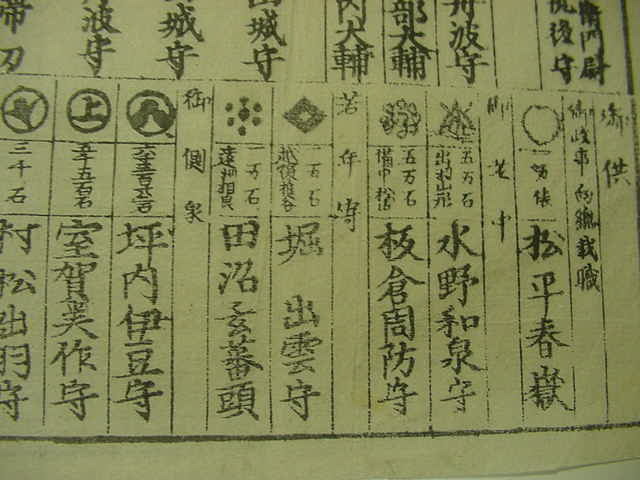 衛門尉
後守
丹波守
部大輔
内大輔
山城守
城守
波守
帯刀
御供
御政事向総裁職
松平春嶽
御老中
五万石
出羽山形
水野和泉守
五万石
備中松山
板倉周防守
若年寄
一万石
越後椎谷
堀出雲守
一万石
遠州相良
田沼玄蕃頭
御側衆
坪内伊豆守
上
五千五百石
室賀美作守
三千石
村松出羽守